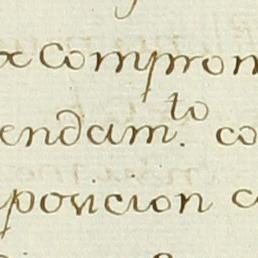 x Comprom
endam.to co
posicion c